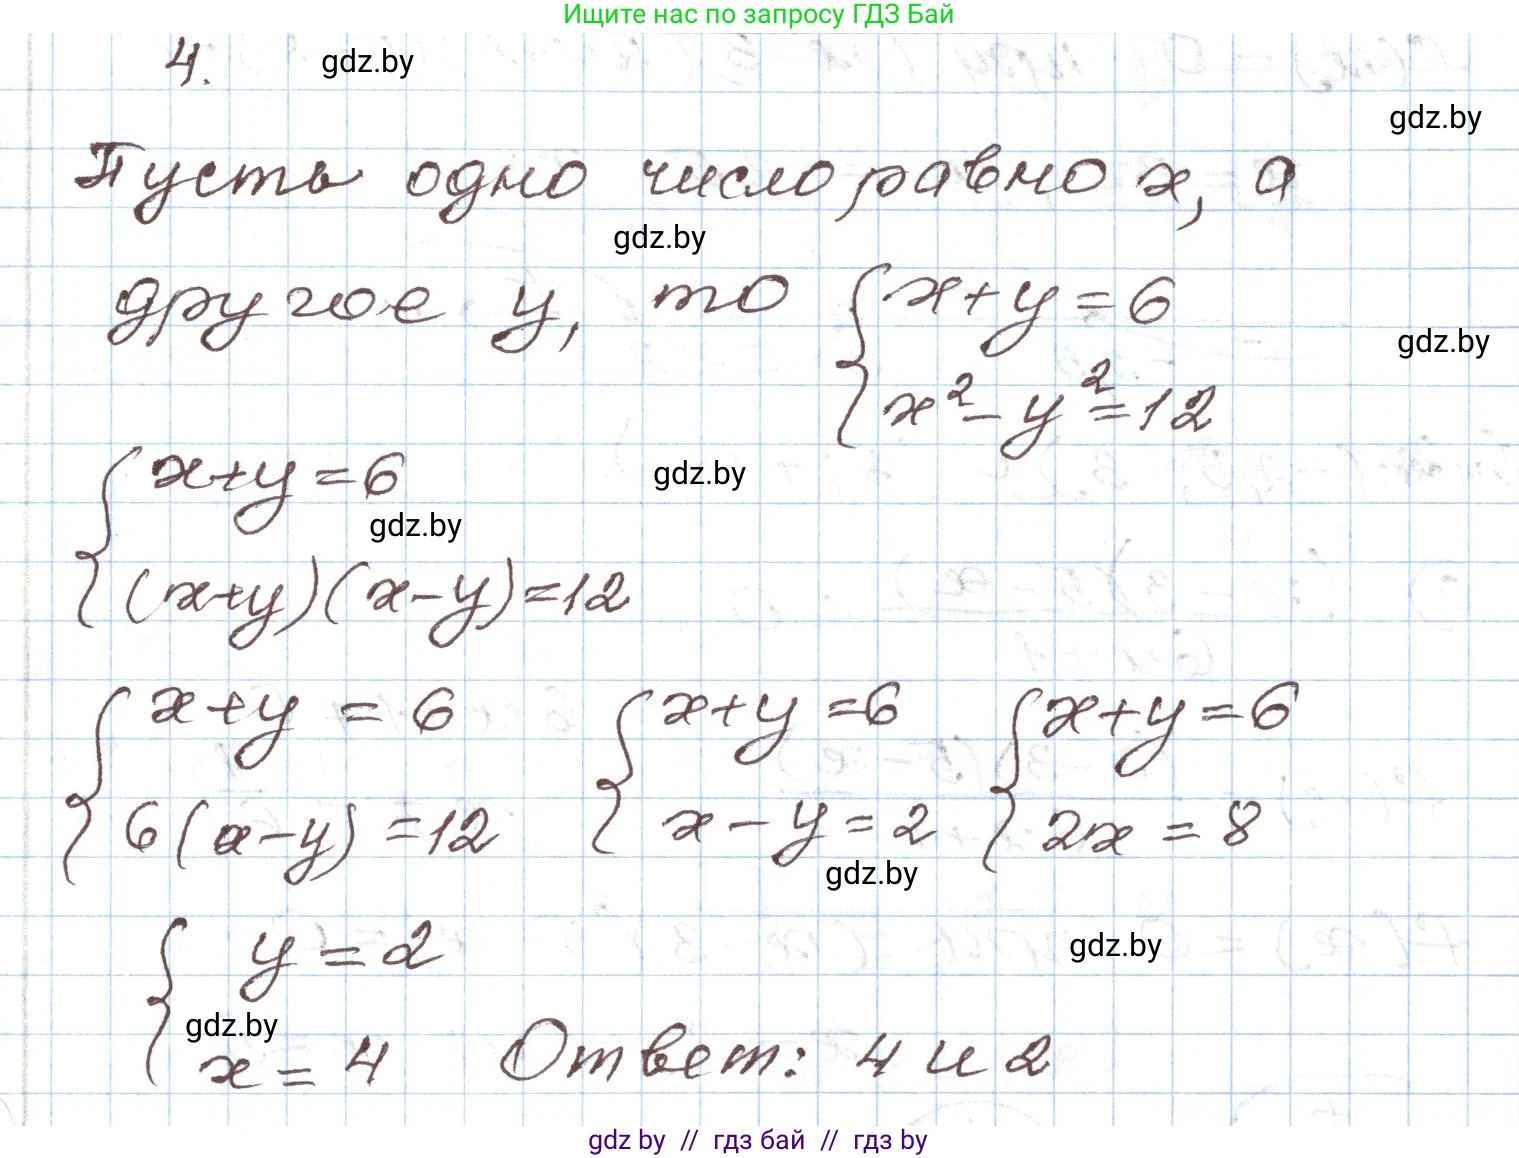 Ищите нас по запросу ГДЗ Бай
4. gdz.by
gdz.by
Пусть одно число равно x, а
gdz.by
другое y, то { x+y=6
gdz.by
x²-y²=12
{ x+y=6 gdz.by
gdz.by
(x+y)(x-y)=12
{ x+y=6 { x+y=6 { x+y=6
6(x-y)=12 x-y=2 2x=8
gdz.by
{ y=2 gdz.by
gdz.by
x=4 Ответ: 4 и 2
gdz by // гдз бай // гдз by